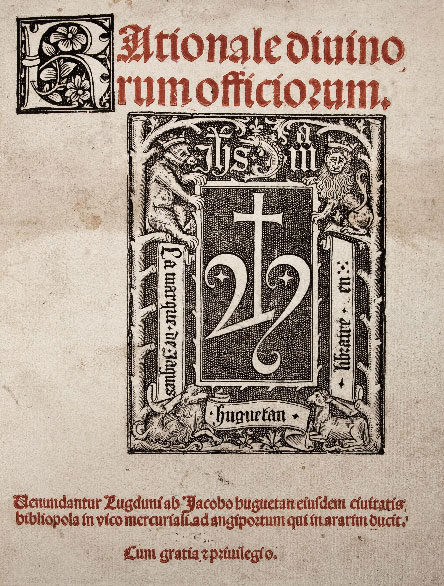 RAtionale diuino
rum officiorum.
Jhs
m
a
La marque de Jaques
huguetan
libraire en
Uenundantur Lugduni ab Jacobo huguetan eiusdem ciuitatis
bibliopola in vico mercuriali. ad angiportum qui in ararim ducit.
Cum gratia ⁊ priuilegio.